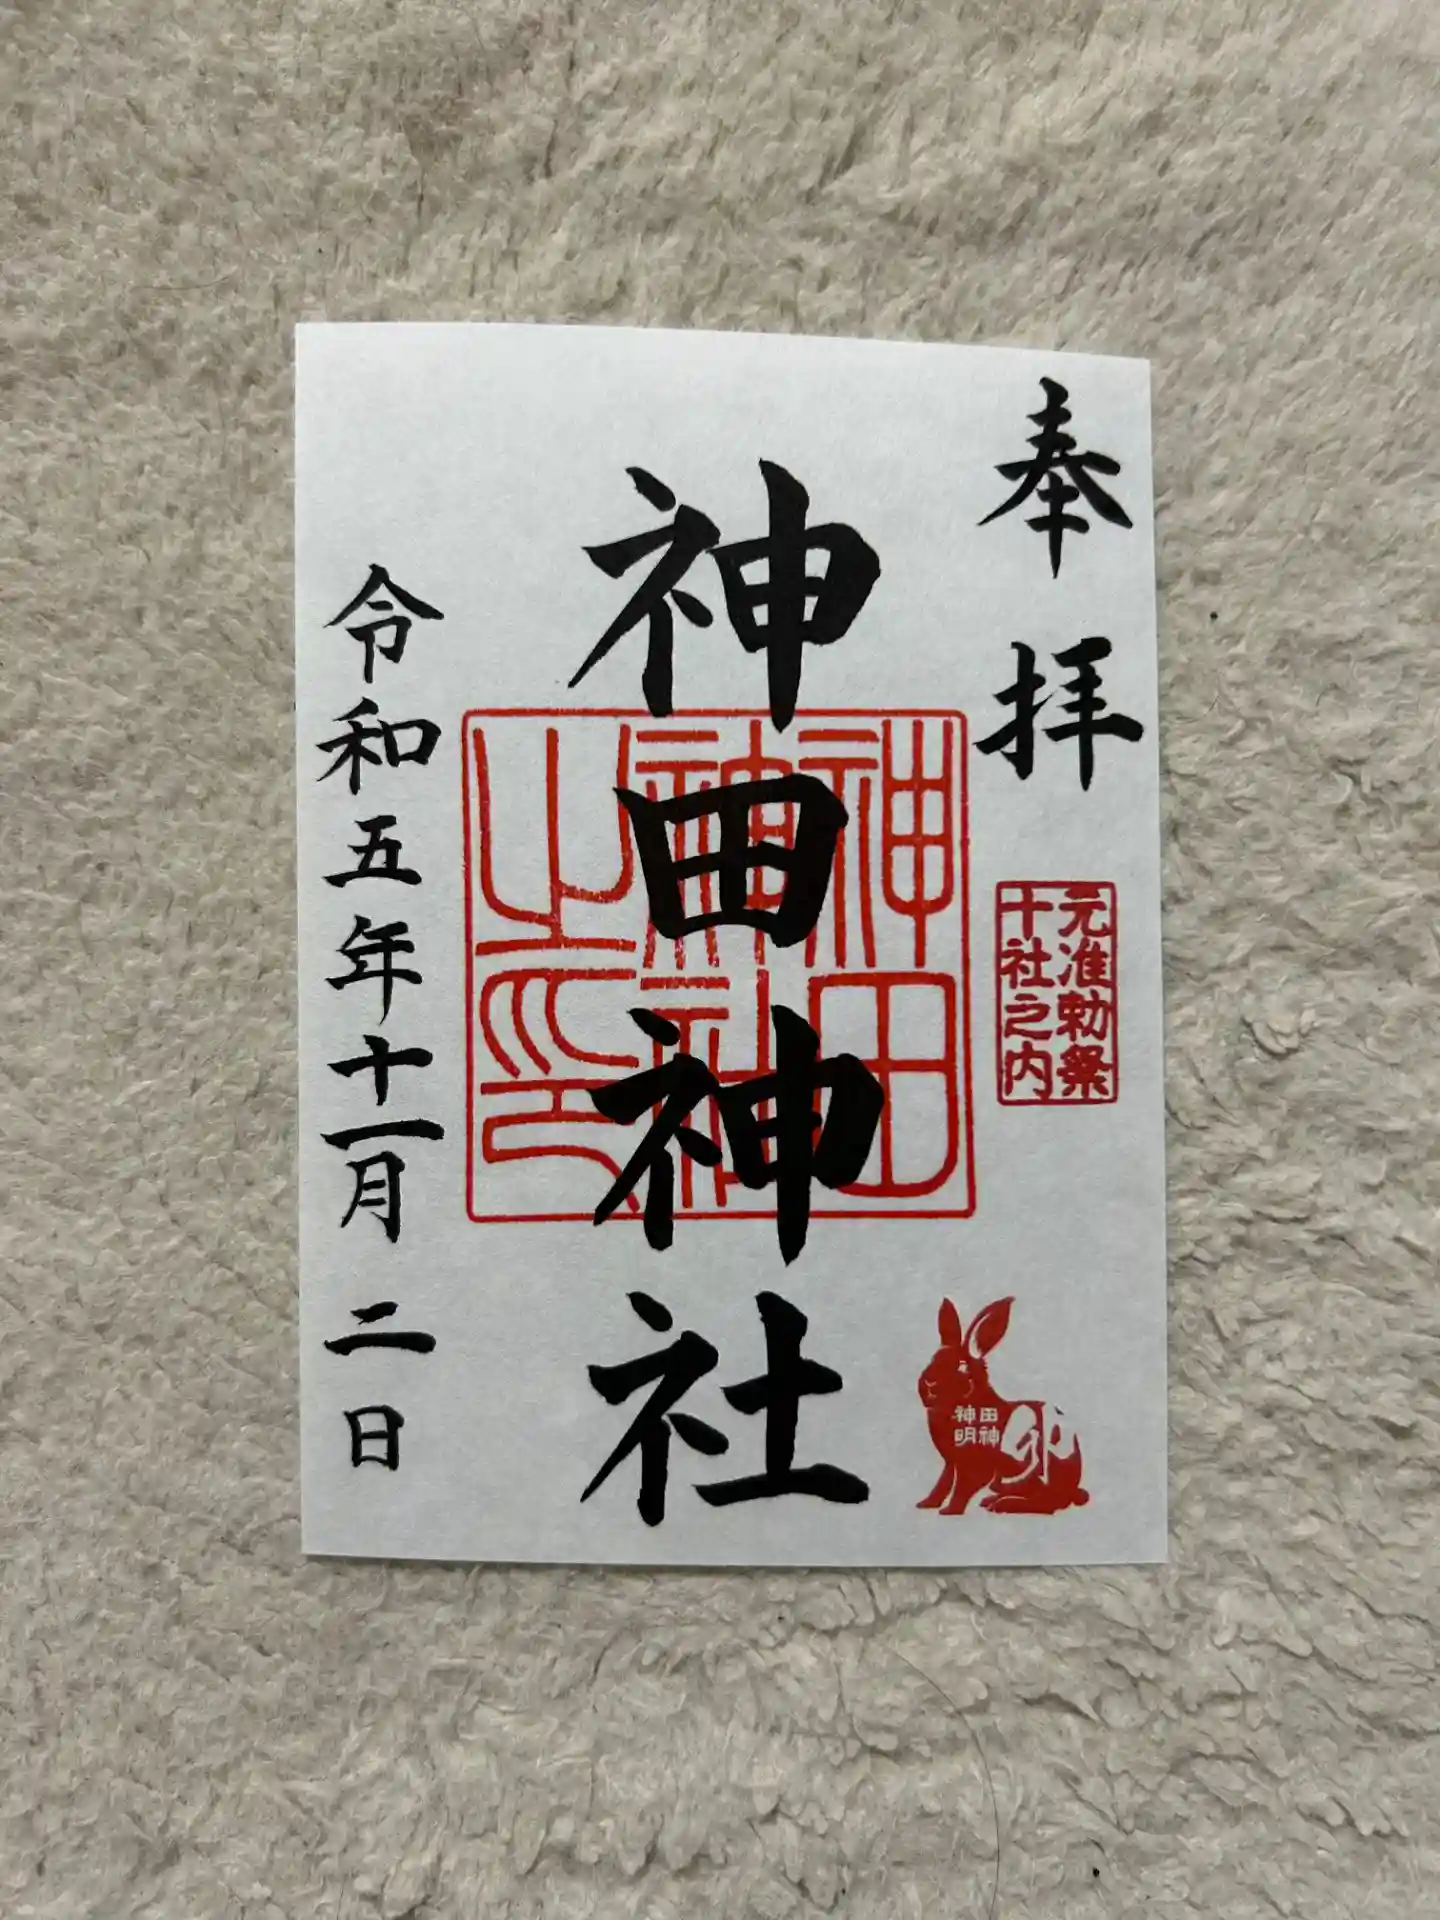 奉拝
元准勅祭
十社之内
神田神社
神田神社之印
神田
明神
卯
令和五年十一月二日